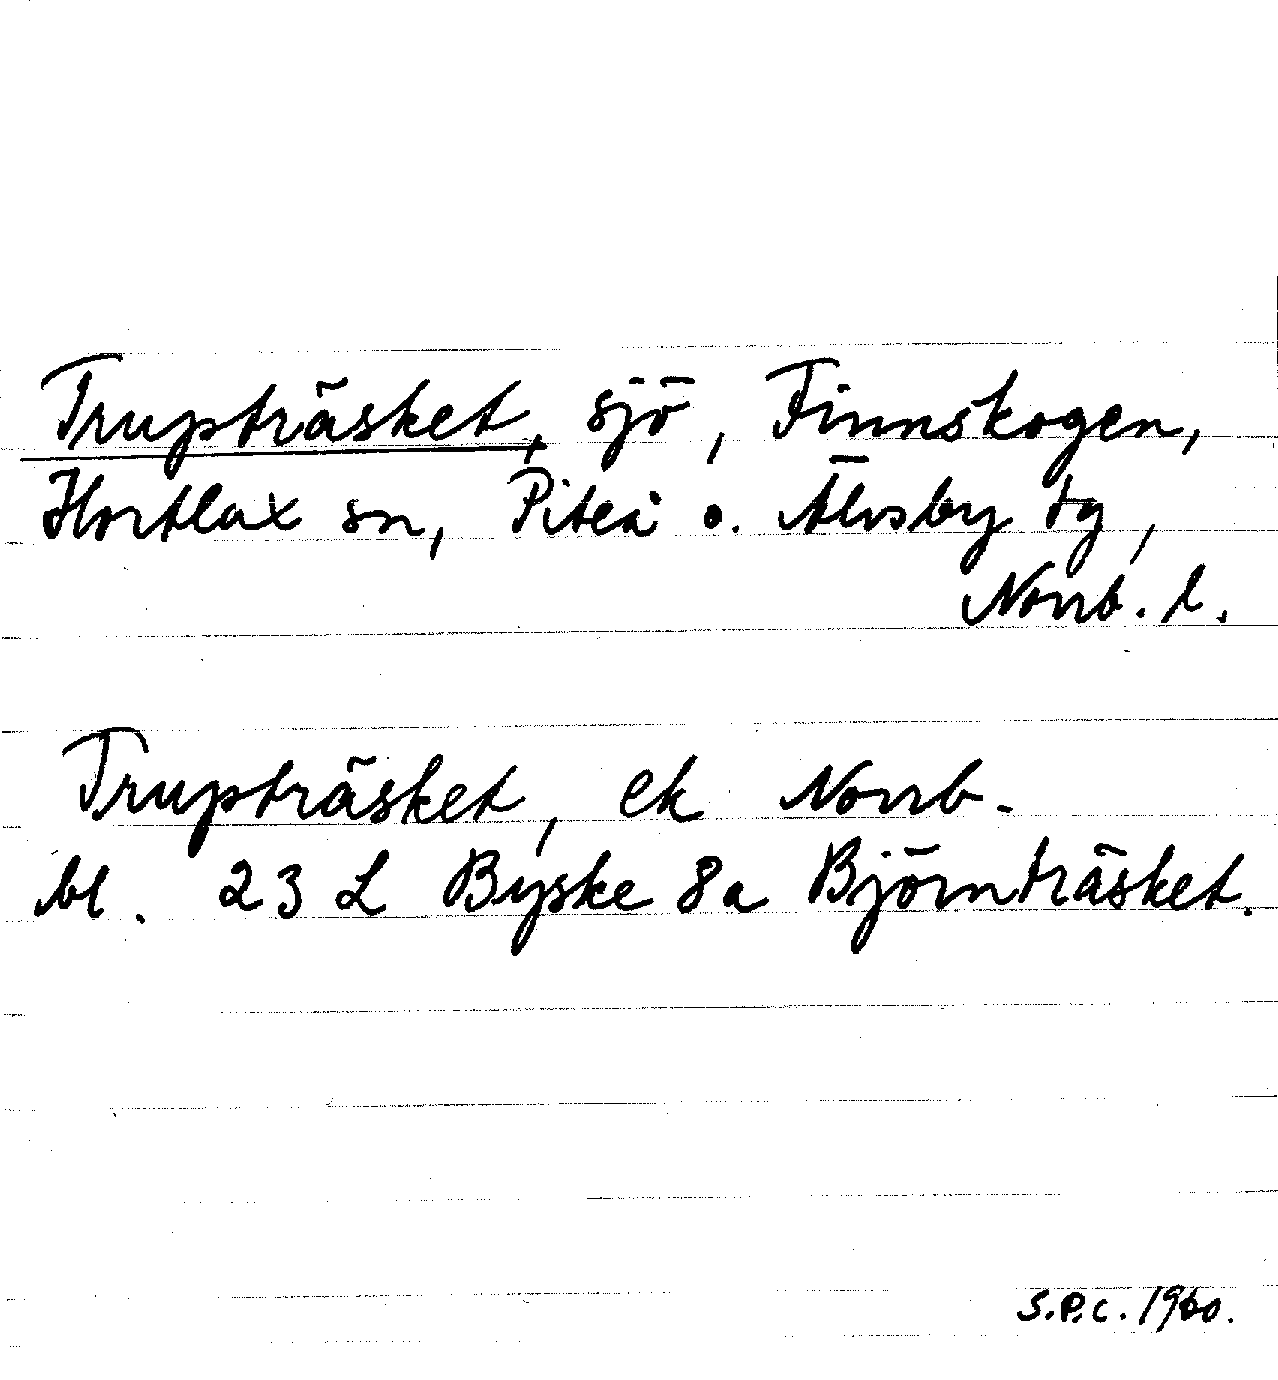 Trupträsket, sjö, Finnskogen,
Hortlax sn, Piteå o. Älvsby tg,
Norrb. l.
Trupträsket, ek Norrb.
bl. 23 L Byske 8a Björnträsket.
S.P.C. 1960.